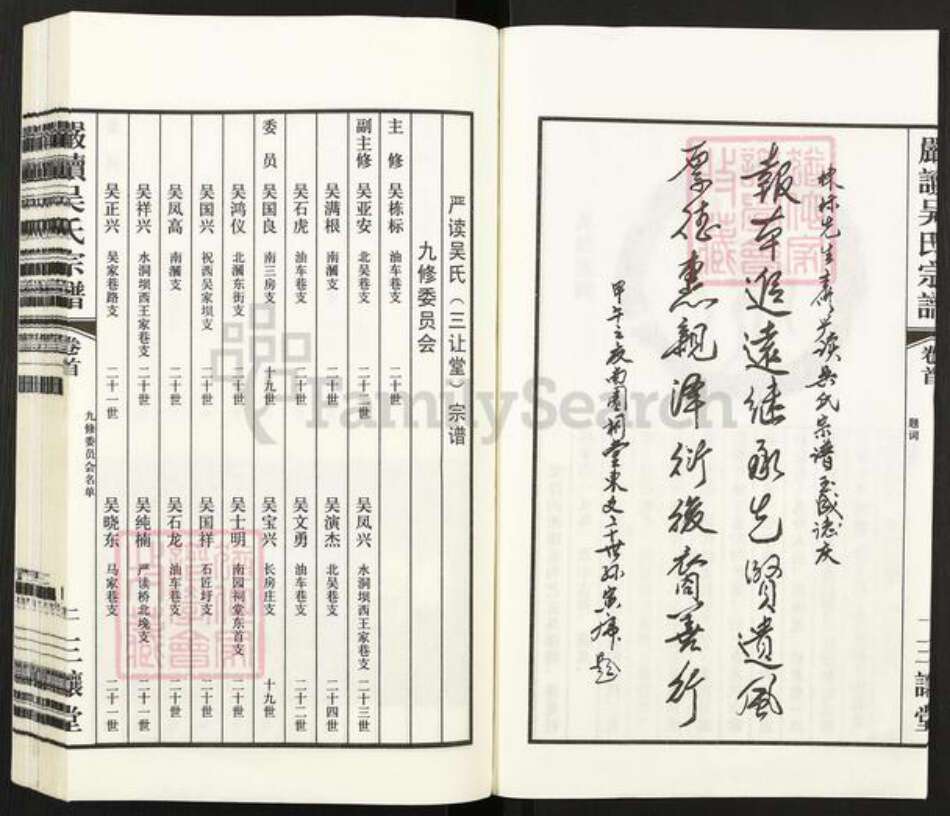 嚴讀吳氏宗譜
卷首
題词
三讓堂
棟标先生主修嚴讀吳氏宗谱玉成誌庆
報本追遠继承先賢遺風
厚德惠親澤衍後裔善行
甲午之夜南園祠堂東支二十世孫
严读吴氏（三让堂）宗谱
九修委员会
主修 吴栋标 油车巷支 二十世
副主修 吴亚安 北吴巷支 二十一世 吴凤兴 水洞坝西王家巷支 二十三世
吴满根 南㵎支 二十世 吴演杰 北吴巷支 二十四世
吴石虎 油车巷支 二十世 吴文勇 油车巷支 二十二世
委员 吴国良 南三房支 十九世 吴宝兴 长房庄支 十九世
吴鸿仪 北㵎东街支 二十世 吴士明 南园祠堂东首支 二十世
吴国兴 祝西吴家坝支 二十世 吴国祥 石匠圩支 二十世
吴凤高 南㵎支 二十世 吴石龙 油车巷支 二十世
吴祥兴 水洞坝西王家巷支 二十世 吴纯楠 严读桥北堍支 二十一世
吴正兴 吴家巷路支 二十一世 吴晓东 马家巷支 二十一世
嚴讀吳氏宗譜
卷首
九修委员会名单
三讓堂
FamilySearch